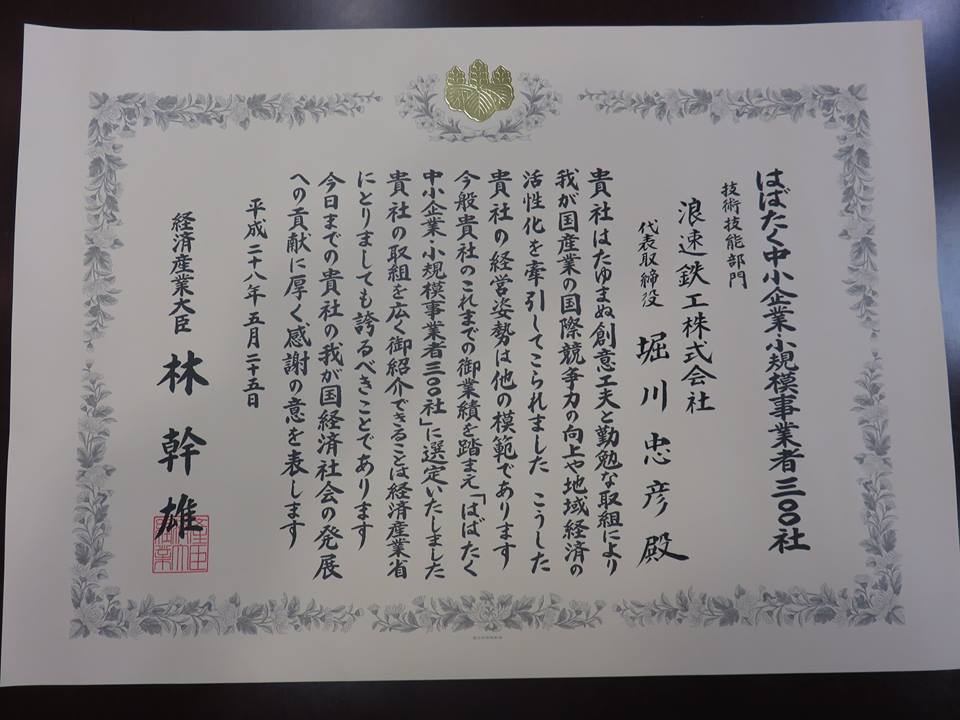 はばたく中小企業・小規模事業者三〇〇社
技術技能部門
浪速鉄工株式会社
代表取締役 堀川忠彦殿
貴社はたゆまぬ創意工夫と勤勉な取組により
我が国産業の国際競争力の向上や地域経済の
活性化を牽引してこられました こうした
貴社の経営姿勢は他の模範であります
今般貴社のこれまでの御業績を踏まえ「はばたく
中小企業・小規模事業者三〇〇社」に選定いたしました
貴社の取組を広く御紹介できることは経済産業省
にとりましても誇るべきことであります
今日までの貴社の我が国経済社会の発展
への貢献に厚く感謝の意を表します
平成二十八年五月二十五日
経済産業大臣 林幹雄